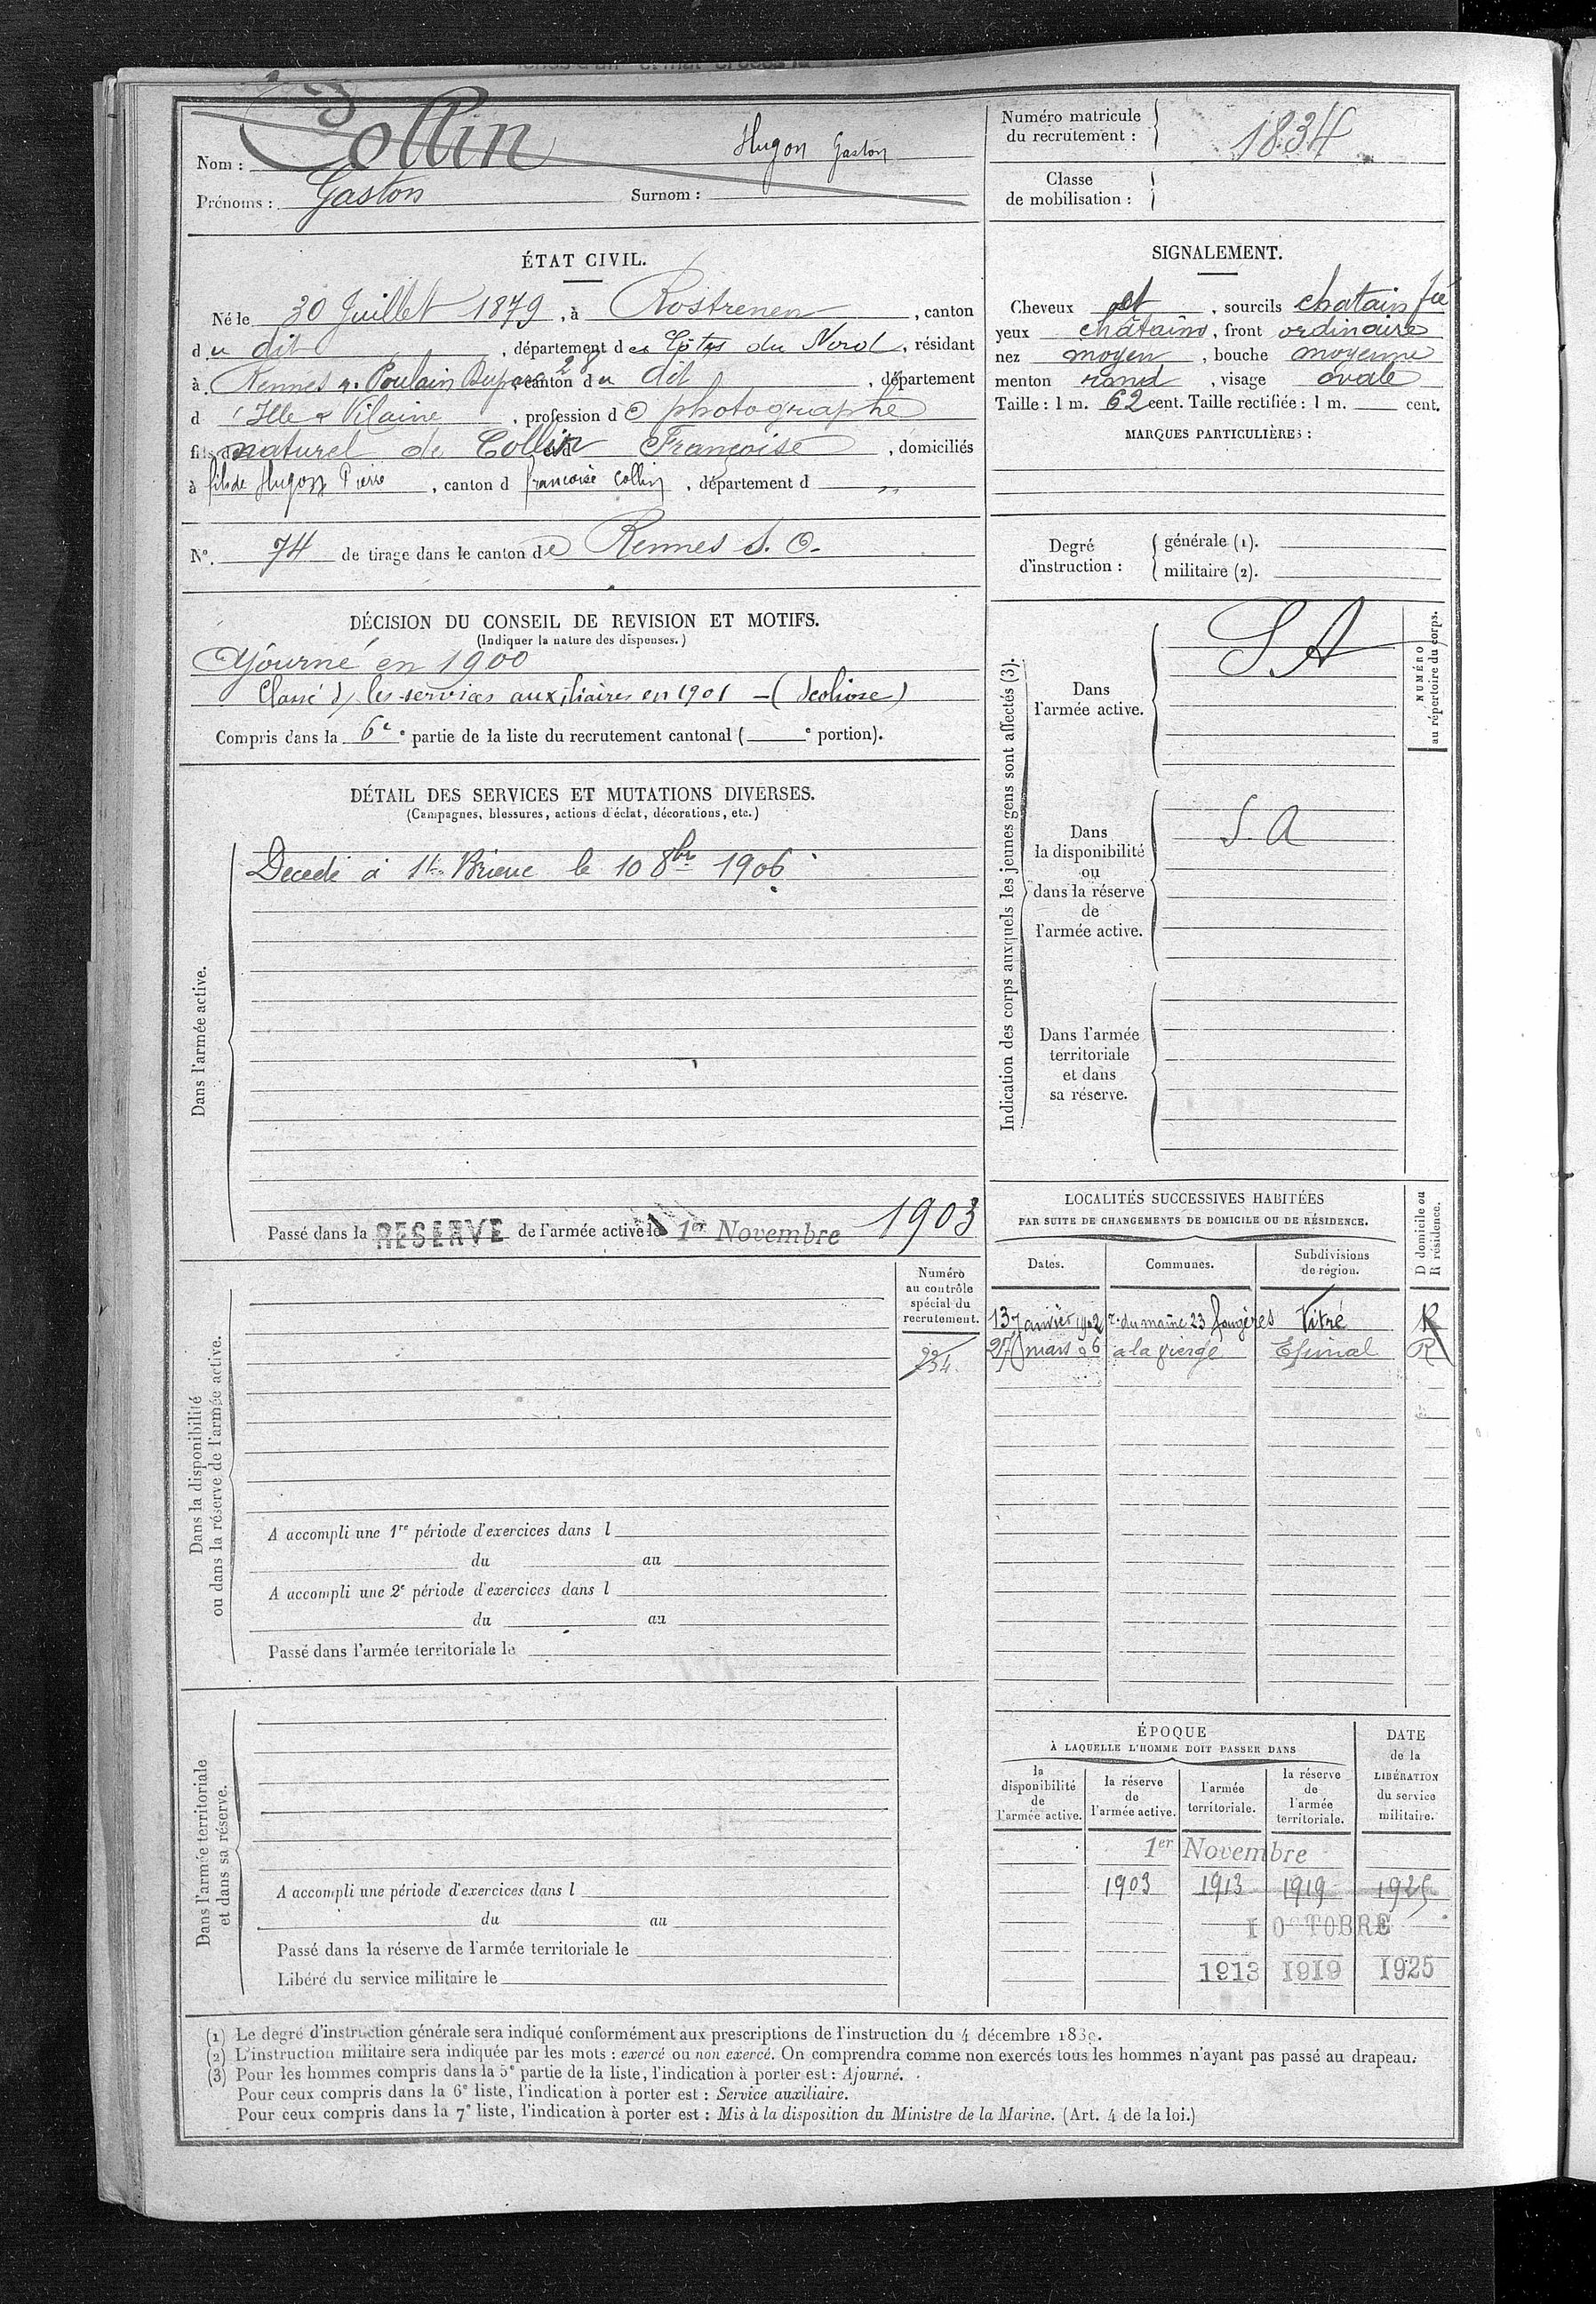 Numéro matricule du recrutement : 1834
Classe de mobilisation :
Nom : Collin Hugon Gaston
Prénoms : Gaston Surnom :
ÉTAT CIVIL.
Né le 30 Juillet 1879, à Rostrenen, canton
du dit, département des Côtes du Nord, résidant
à Rennes r. Poulain Duparc 28 canton du dit, département
d'Ille & Vilaine, profession de photographe
fils naturel de Collin et d Françoise, domiciliés
à fils de Hugon Pierre, canton d françoise Collin, département d "
No. 74 de tirage dans le canton de Rennes S. O.
DÉCISION DU CONSEIL DE REVISION ET MOTIFS.
(Indiquer la nature des dispenses.)
Ajourné en 1900
Classé ds les services auxiliaires en 1901 — (Scoliose)
Compris dans la 6e e partie de la liste du recrutement cantonal ( e portion).
DÉTAIL DES SERVICES ET MUTATIONS DIVERSES.
(Campagnes, blessures, actions d'éclat, décorations, etc.)
Dans l'armée active.
Decedé à St Brieuc le 10 8bre 1906
Passé dans la RESERVE de l'armée active le 1er Novembre 1903
Numéro au contrôle spécial du recrutement.
234
Dans la disponibilité
ou dans la réserve de l'armée active.
A accompli une 1re période d'exercices dans l
du au
A accompli une 2e période d'exercices dans l
du au
Passé dans l'armée territoriale le
Dans l'armée territoriale
et dans sa réserve.
A accompli une période d'exercices dans l
du au
Passé dans la réserve de l'armée territoriale le
Libéré du service militaire le
SIGNALEMENT.
Cheveux et, sourcils chatain
yeux châtains, front ordinaire
nez moyen, bouche moyenne
menton rond, visage ovale
Taille : 1 m. 62 cent. Taille rectifiée : 1 m. cent.
MARQUES PARTICULIÈRES :
Degré d'instruction :
générale (1).
militaire (2).
Indication des corps auxquels les jeunes gens sont affectés (3).
NUMÉRO
au répertoire du corps.
Dans
l'armée active.
S. A
Dans
la disponibilité
ou
dans la réserve
de
l'armée active.
S. A
Dans l'armée
territoriale
et dans
sa réserve.
LOCALITÉS SUCCESSIVES HABITÉES
PAR SUITE DE CHANGEMENTS DE DOMICILE OU DE RÉSIDENCE.
D domicile ou
R résidence.
Dates. Communes. Subdivisions de région.
13 Janvier 1902 r. du maine 23 fougères Vitré R
27 mars 06 a la vierge Epinal R
ÉPOQUE
À LAQUELLE L'HOMME DOIT PASSER DANS
DATE de la LIBÉRATION du service militaire.
la disponibilité de l'armée active.
la réserve de l'armée active.
l'armée territoriale.
la réserve de l'armée territoriale.
1er Novembre
1903 1913 1919 1925
1 OCTOBRE
1913 1919 1925
(1) Le degré d'instruction générale sera indiqué conformément aux prescriptions de l'instruction du 4 décembre 1889.
(2) L'instruction militaire sera indiquée par les mots : exercé ou non exercé. On comprendra comme non exercés tous les hommes n'ayant pas passé au drapeau.
(3) Pour les hommes compris dans la 5e partie de la liste, l'indication à porter est : Ajourné.
Pour ceux compris dans la 6e liste, l'indication à porter est : Service auxiliaire.
Pour ceux compris dans la 7e liste, l'indication à porter est : Mis à la disposition du Ministre de la Marine. (Art. 4 de la loi.)